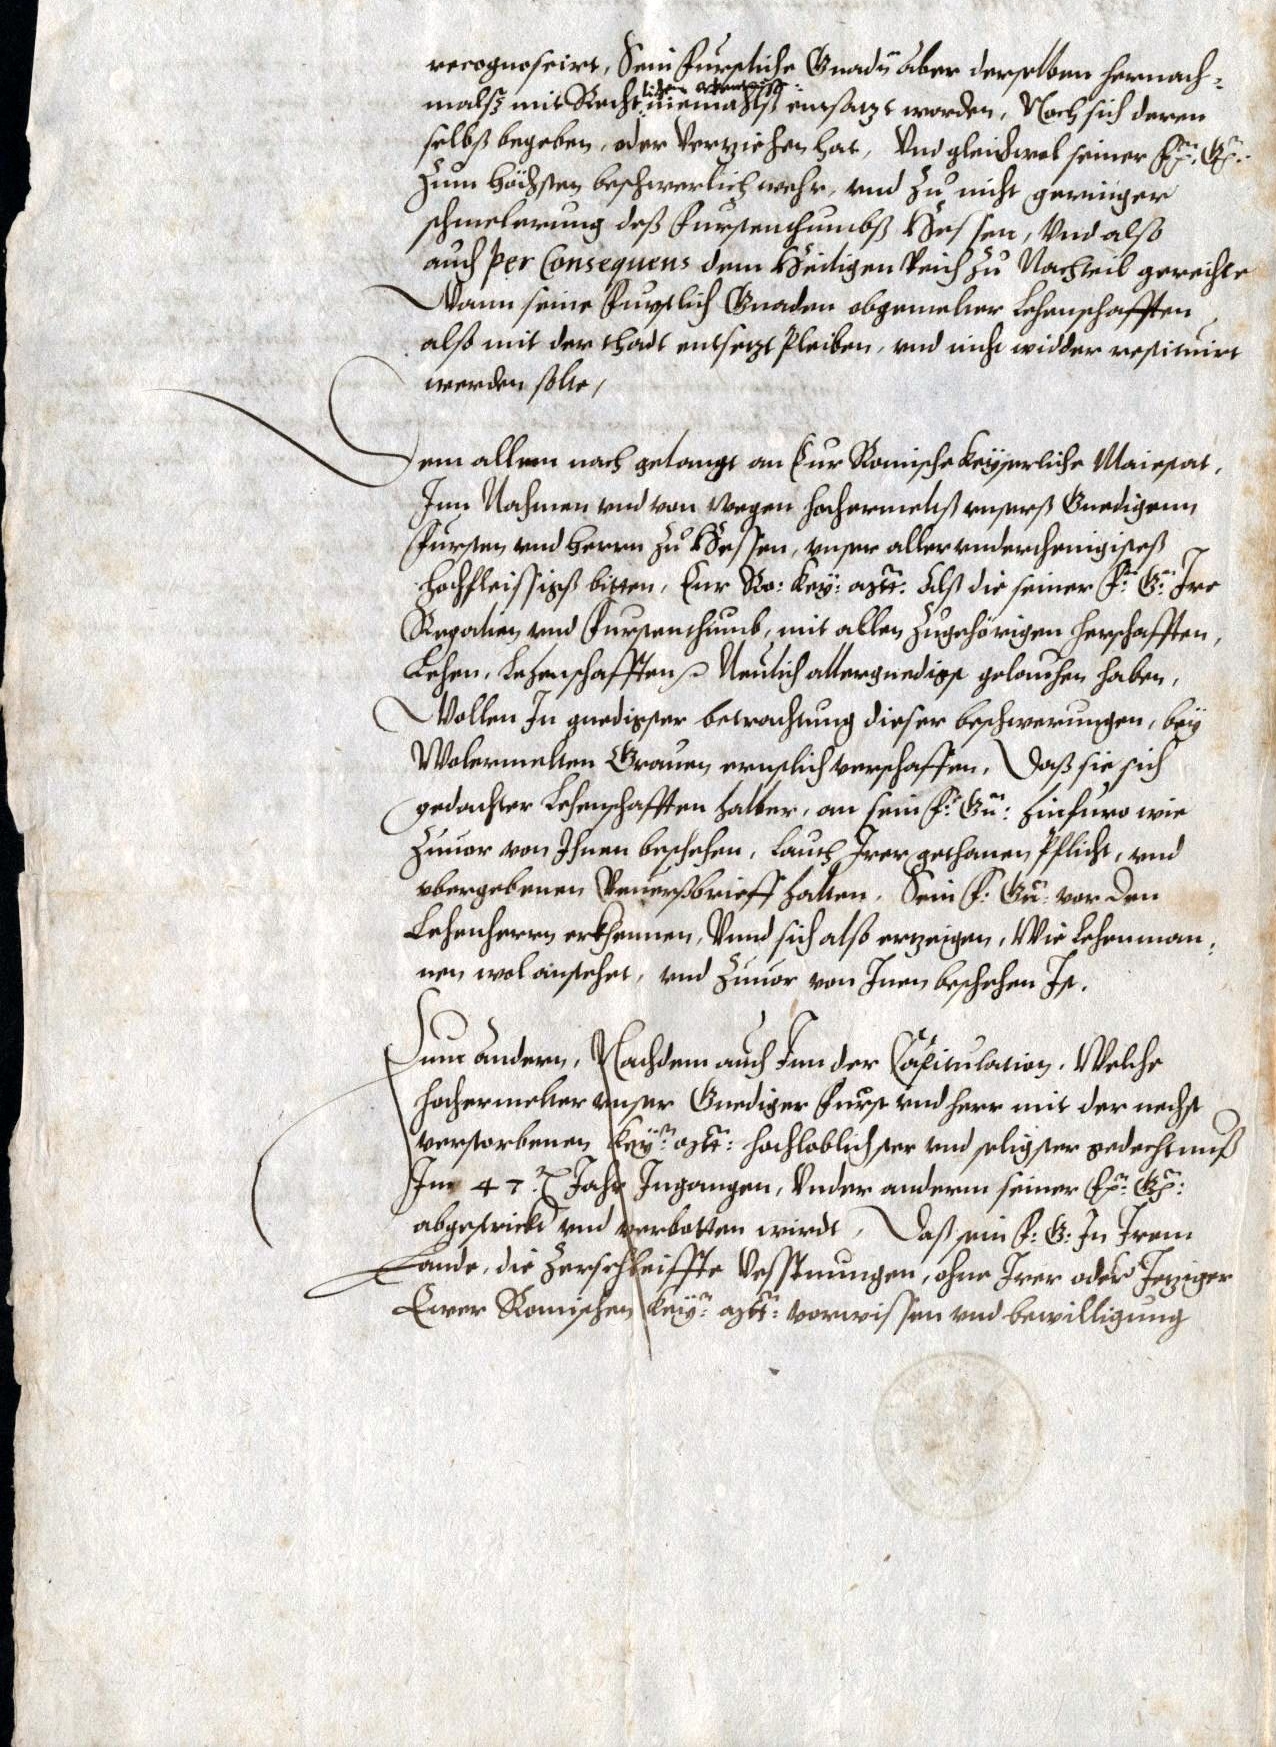 recognoscirt, Sein Furstliche Gnadn aber derselben hernach=
malß mit Recht lichem erkentniß niemahlß entsatzt worden, Noch sich deren
selbß begeben, oder Verziehen hat, Vnd gleichwol seiner F: G:
Zum höchsten beschwerlich wehr, vnd Zu nicht geringer
schmelerung deß Furstenthumbß Hessen, Vnd also
auch per Consequens dem Heiligen Reich Zu Nachteil gereichte
Wann seine Furstlich Gnaden obgemelter Lehenschafften
also mit der thadt entsetzt pleiben, vnd nicht widder restituirt
werden solte,
Dem allem nach gelangt an Eur Romische Keyserliche Maiestat,
Inn Nahmen vnd von wegen hochermelts vnserß Gnedigenn
Fursten vnd Herrn Zu Hessen, vnser aller vnderthenigisteß
hochfleissigß bitten, Eur Ro: Key: Mtt: Alß die seiner F: G: Ire
Regalien vnd Furstenthumb, mit allen Zugehörigen herschafften,
Lehen, Lehenschafften Neulich allergnedigst geleuhen haben,
Wollen In gnedigster betrachtung dieser beschwerungen, bey
Wolermelten Grauen ernstlich verschaffen, Daß sie sich
gedachter Lehenschafften halber, an sein F: Gn: hinfuro wie
Zuuor von Ihnen beschehen, lauth Irer gethanen Pflicht, vnd
vbergebenen Reuerßbrieff halten, Sein F: Gn: vor den
Lehenherrn erkhennen, Vnnd sich also erzeigen, Wie Lehenman,
nen wol anstehet, vnd Zuuor von Inen beschehen Ist.
Zum andern, Nachdem auch Inn der Capitulation, Welche
hochermelter vnser Gnediger Furst vnd herr mit der nechst
verstorbenen Key: Mtt: hochloblichster vnd seligster gedechtnuß
Im 47 Jahr Ingangen, Vnder anderm seiner F: G:
abgestrickt vnd verbotten wirdt, Daß sein F: G: In Irem
Lande, die Zerschleiffte Vesstnungen, ohne Irer oder Jetziger
Ewer Romischen Key: Mtt: vorwissen vnd bewilligung